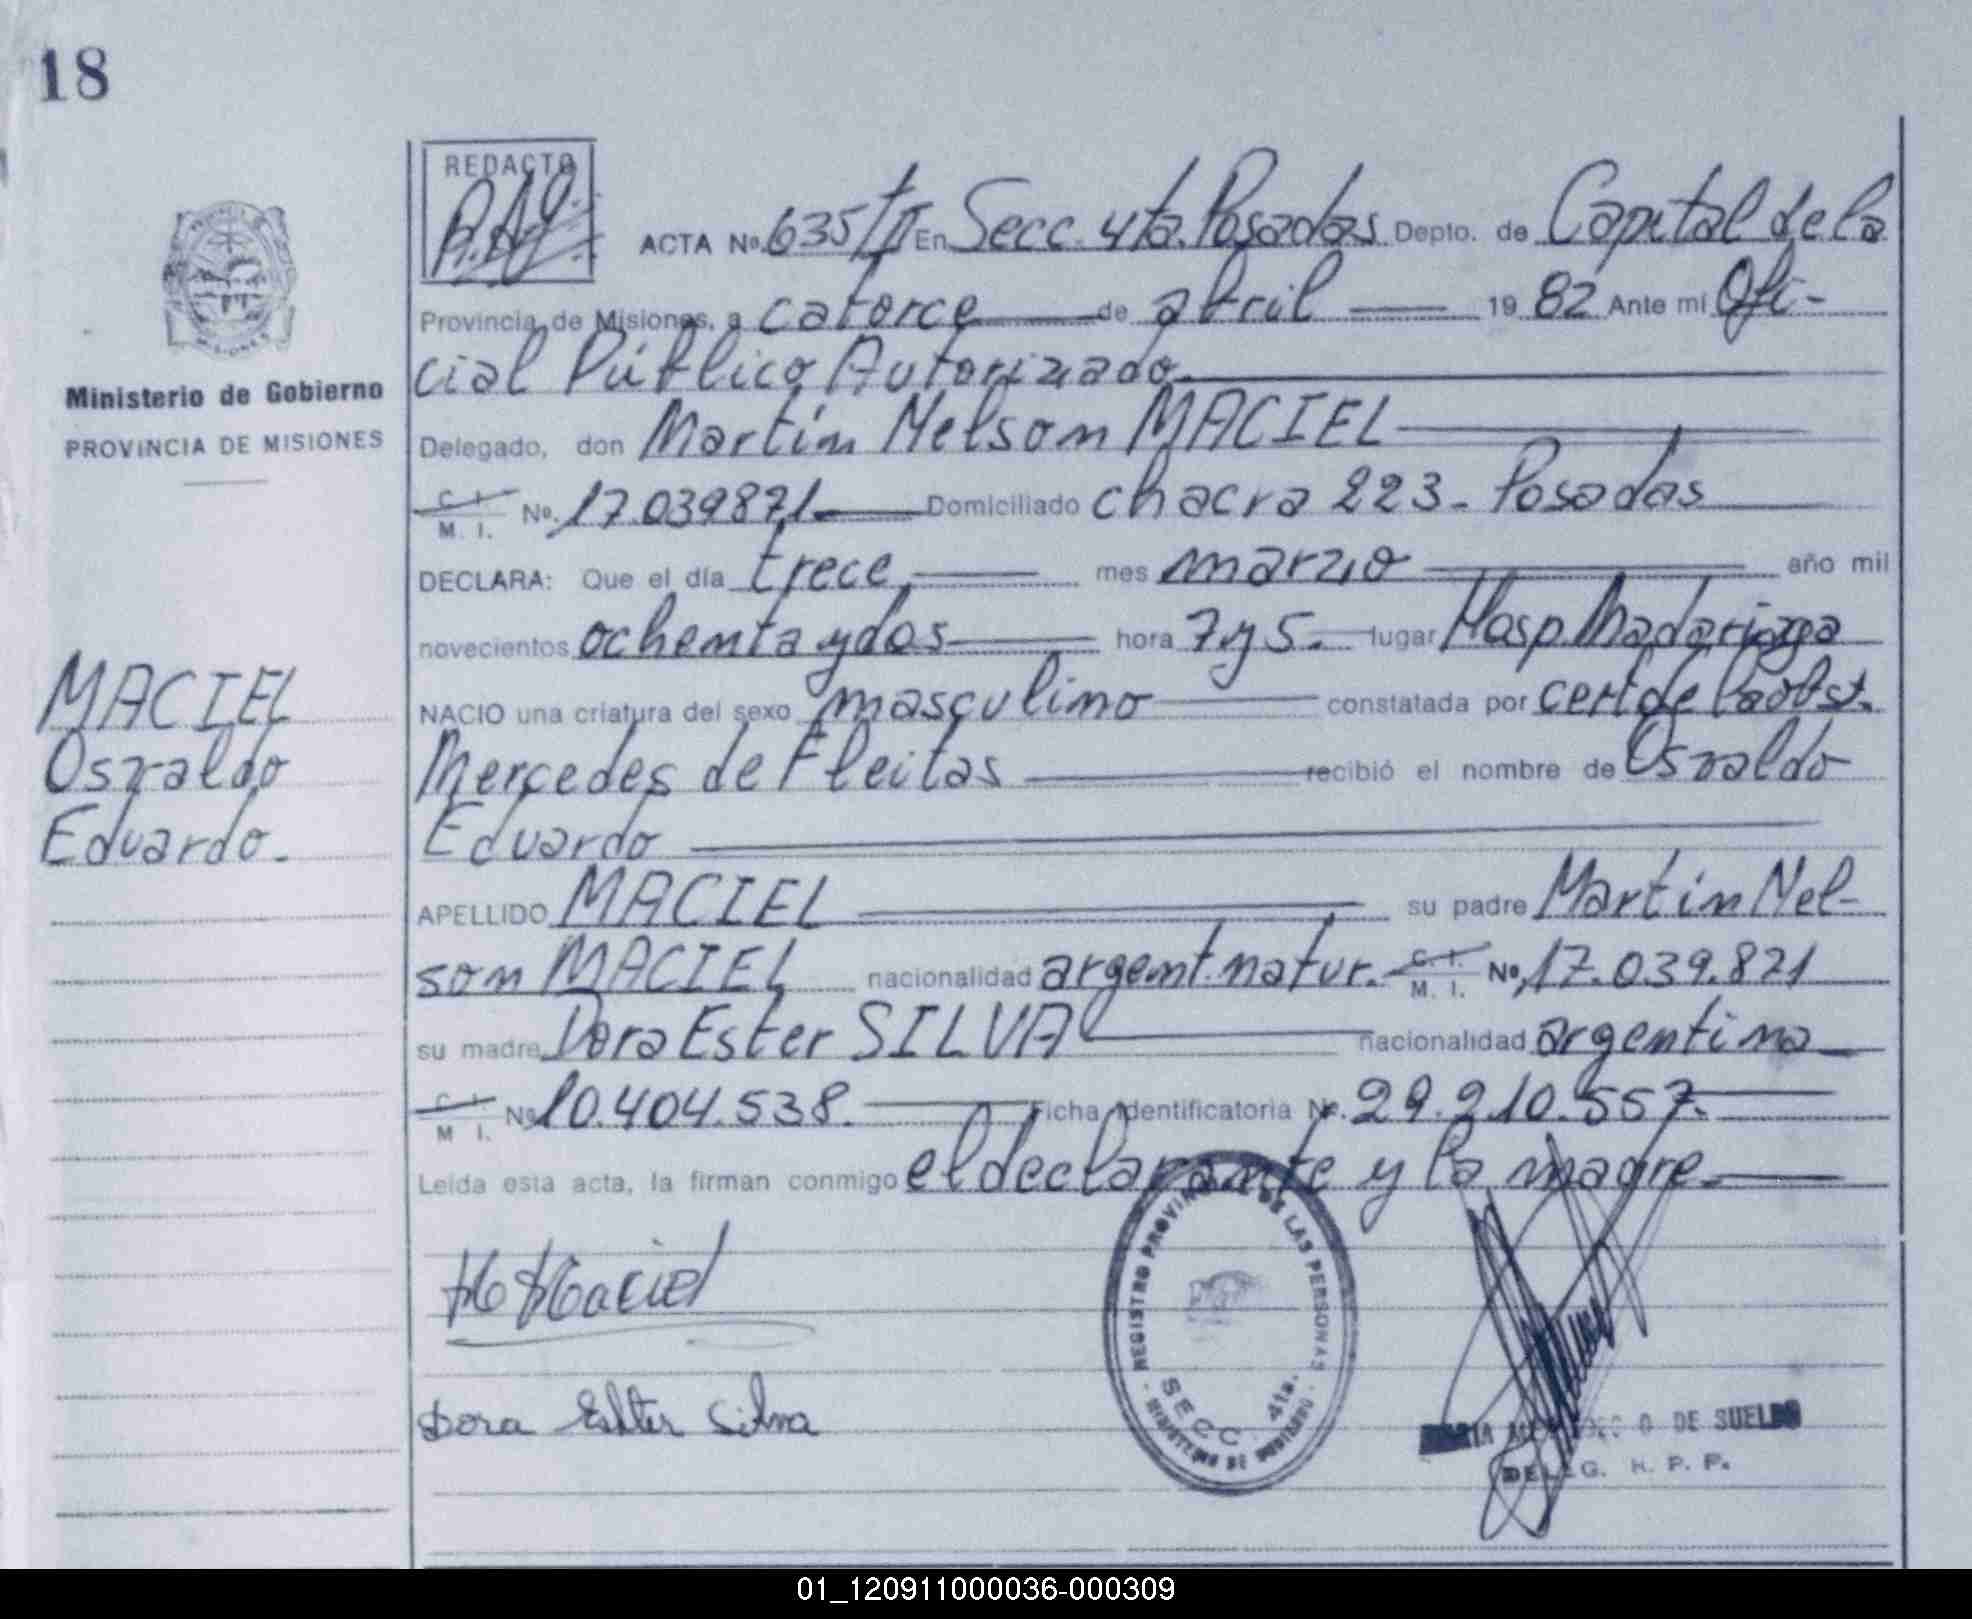 18
REDACTO
ACTA No. 635/II En Secc. 4ta. Posadas Depto. de Capital de la
Provincia de Misiones, a catorce de abril 1982 Ante mi Ofi-
cial Público Autorizado
Ministerio de Gobierno
PROVINCIA DE MISIONES
Delegado, don Martin Nelson MACIEL
C. I.
M. I. No. 17.039871 Domiciliado chacra 223 - Posadas
DECLARA: Que el día trece mes marzo año mil
novecientos ochenta y dos hora 7 y 5. lugar Hosp. Madariaga
NACIO una criatura del sexo masculino constatada por cert de la obst.
Mercedes de Fleitas recibió el nombre de Osvaldo
Eduardo
MACIEL
Osvaldo
Eduardo.
APELLIDO MACIEL su padre Martin Nel-
son MACIEL nacionalidad argent. natur. C. I. M. I. No. 17.039.871
su madre Dora Ester SILVA nacionalidad argentina
C. I.
M I. No 10.404.538. Ficha Identificatoria No. 29.210.557.
Leida esta acta, la firman conmigo el declarante y la madre
Maciel
Dora Esther Silva
REGISTRO PROVINCIAL DE LAS PERSONAS
SECC. 4ta.
MINISTERIO DE GOBIERNO
DE SUELDO
DELEG. R. P. P.
01_120911000036-000309